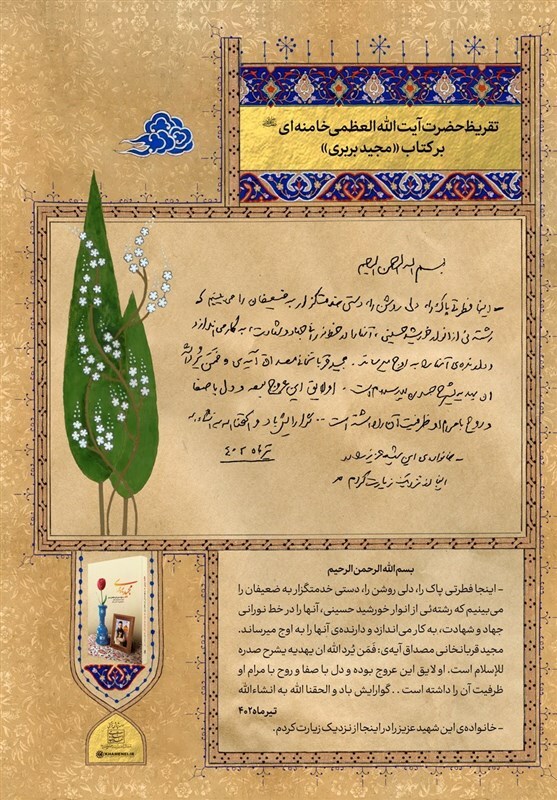 تقریظ حضرت آیت الله العظمی خامنه‌ای
بر کتاب «مجید بربری»
بسم الله الرحمن الرحیم
- اینجا فطرتی پاک را، دلی روشن را، دستی خدمتگزار به ضعیفان را می‌بینیم که
رشته‌ئی از انوار خورشید حسینی، آنها را در خط نورانی جهاد و شهادت، به کار می‌اندازد
و دارنده‌ی آنها را به اوج میرساند. مجید قربانخانی مصداق آیه‌ی: فمَن یُرد الله
ان یهدیه یشرح صدره للإسلام است. او لایق این عروج بوده و دل با صفا
و روح با مرام او ظرفیت آن را داشته است .. گوارایش باد و الحقنا الله به انشاءالله
تیرماه ۴۰۲
- خانواده‌ی این شهید عزیز را در
اینجا از نزدیک زیارت کردم
بسم الله الرحمن الرحیم
- اینجا فطرتی پاک را، دلی روشن را، دستی خدمتگزار به ضعیفان را
می‌بینیم که رشته‌ئی از انوار خورشید حسینی، آنها را در خط نورانی
جهاد و شهادت، به کار می‌اندازد و دارنده‌ی آنها را به اوج میرساند.
مجید قربانخانی مصداق آیه‌ی: فمَن یُرد الله ان یهدیه یشرح صدره
للإسلام است. او لایق این عروج بوده و دل با صفا و روح با مرام او
ظرفیت آن را داشته است .. گوارایش باد و الحقنا الله به انشاءالله
تیرماه ۴۰۲
- خانواده‌ی این شهید عزیز را در اینجا از نزدیک زیارت کردم.
KHAMENEI.IR